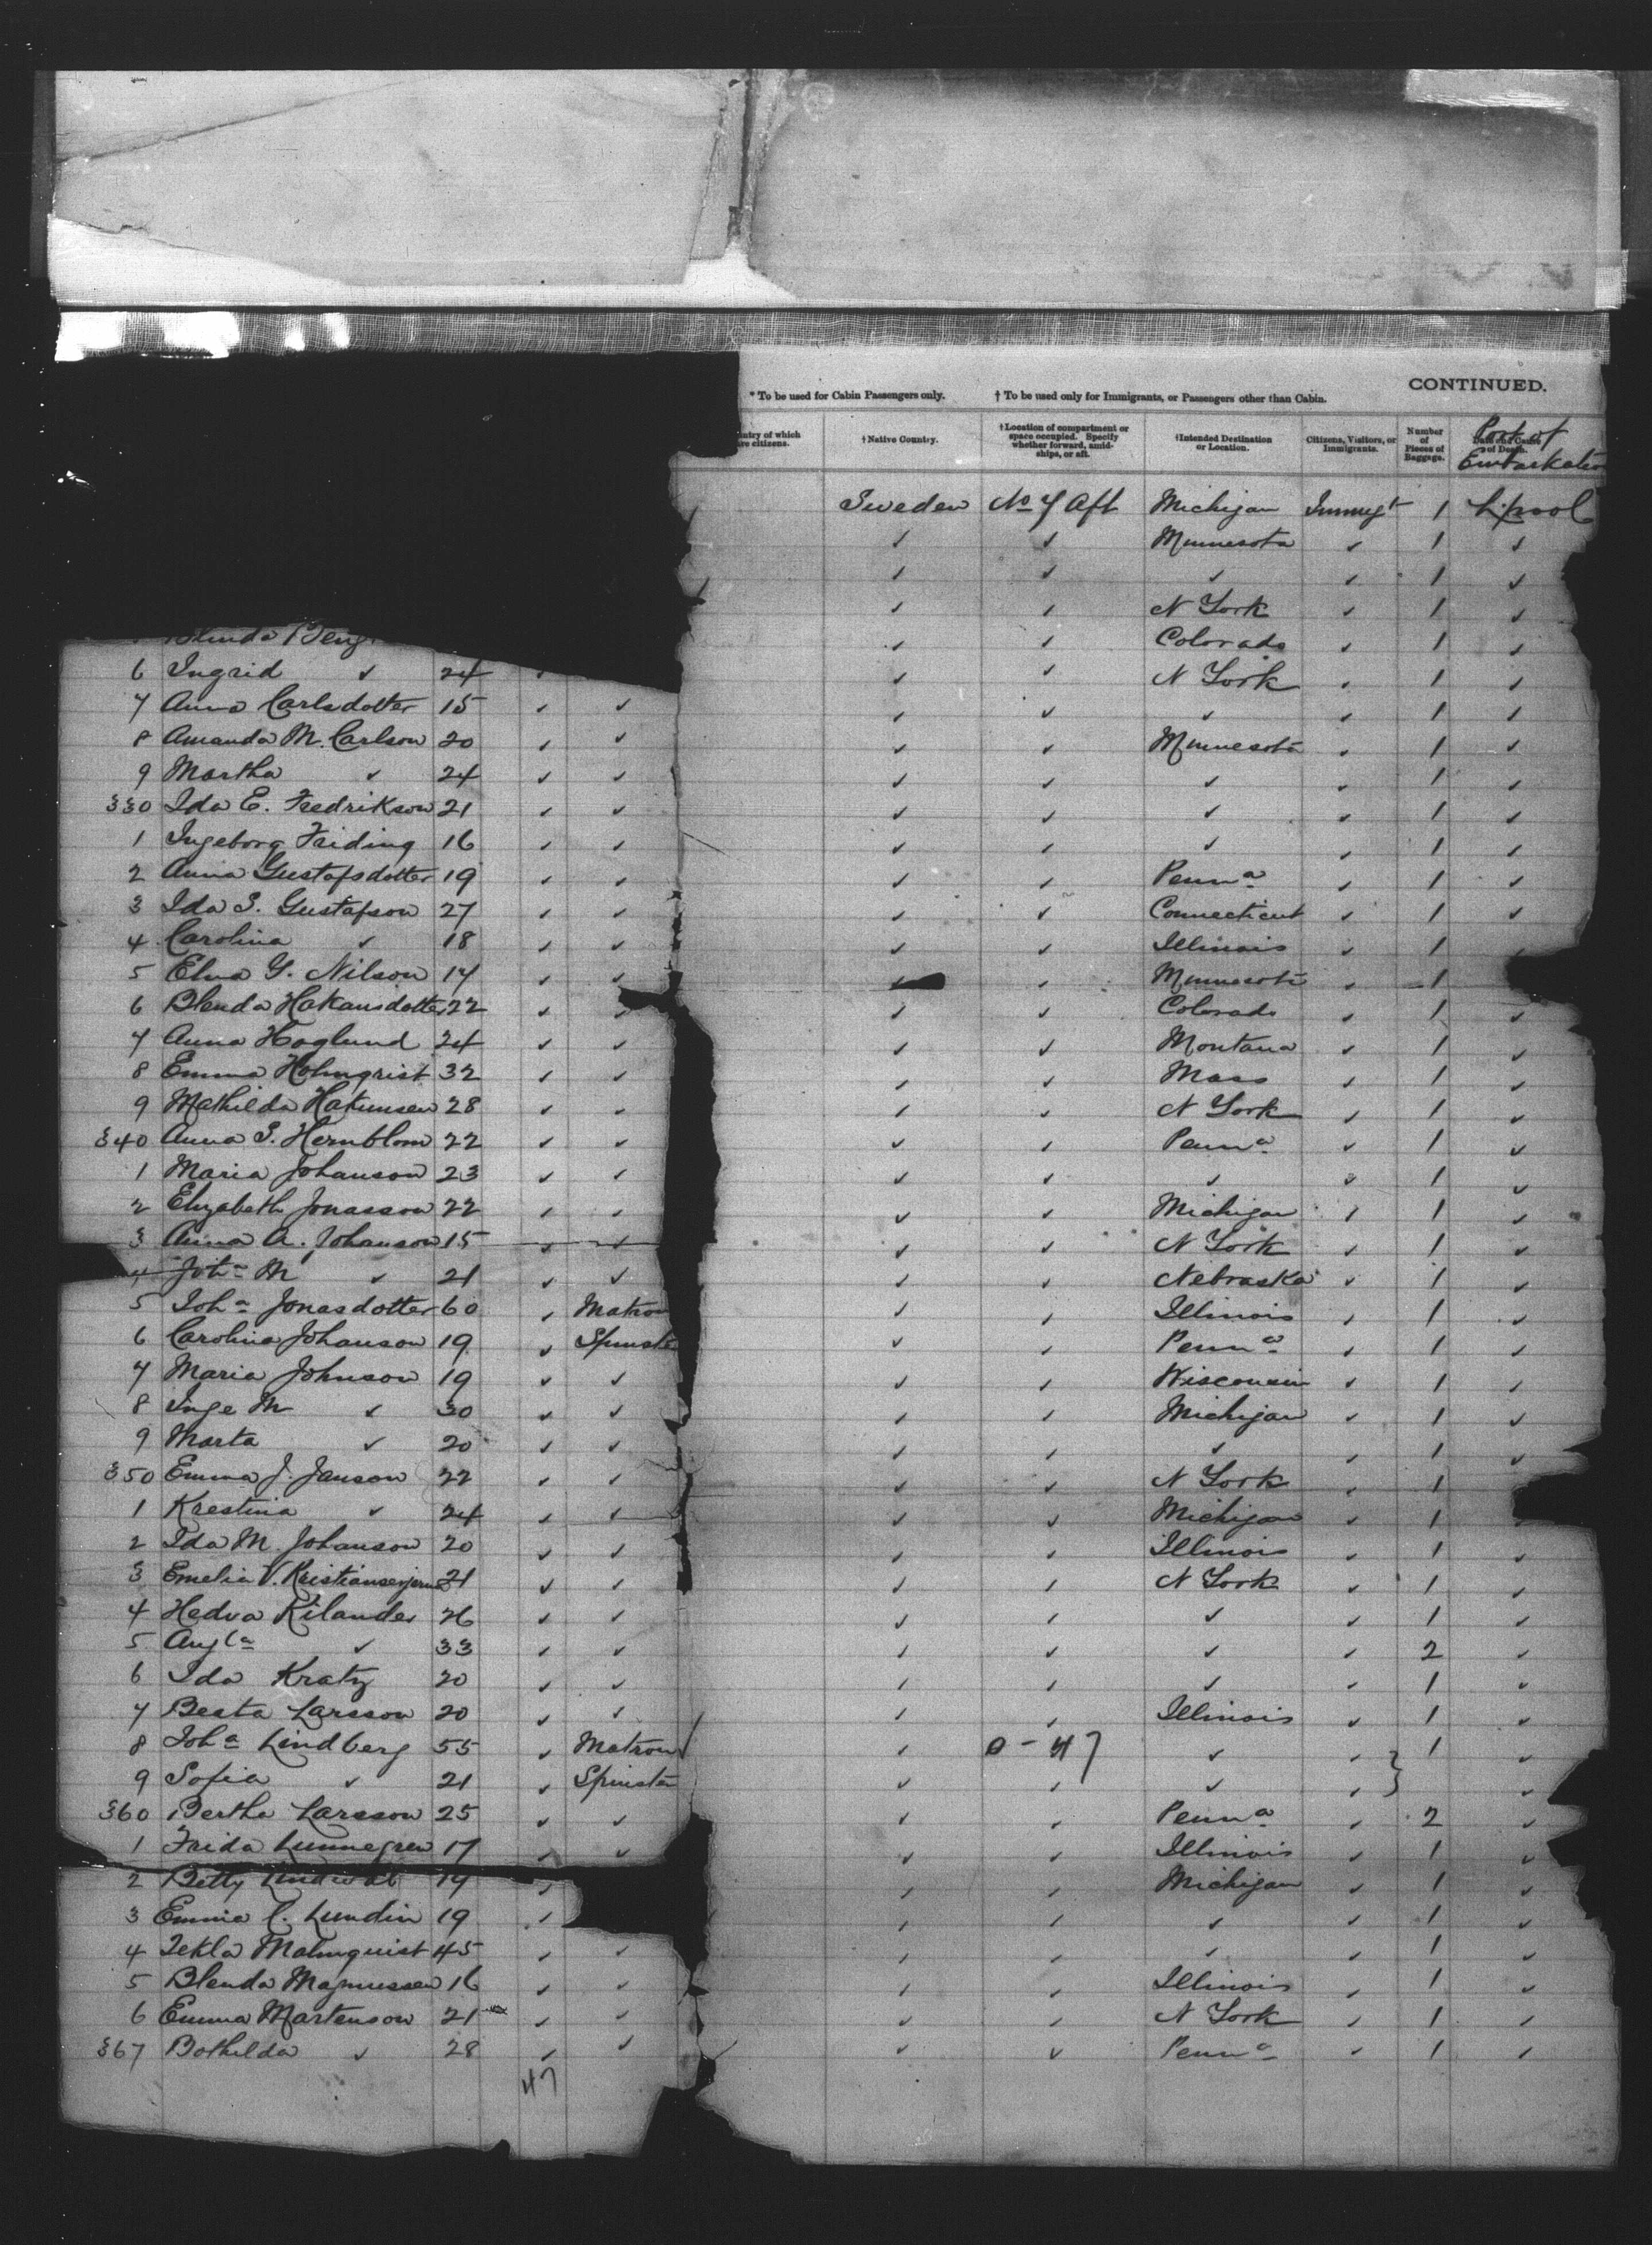 CONTINUED.
* To be used for Cabin Passengers only. † To be used only for Immigrants, or Passengers other than Cabin.
ntry of which
re citizens. † Native Country. † Location of compartment or space occupied. Specify whether forward, amidships, or aft. † Intended Destination or Location. Citizens, Visitors, or Immigrants. Number of Pieces of Baggage. Port of Embarkation
Sweden No 7 Aft Michigan Immigt 1 L'pool
✓ ✓ Minnesota ✓ 1 ✓
✓ ✓ ✓ ✓ 1 ✓
✓ ✓ N York ✓ 1 ✓
Blenda Beng ✓ ✓ Colorado ✓ 1 ✓
6 Ingrid ✓ 24 ✓ ✓ ✓ N York ✓ 1 ✓
7 Anna Carlsdotter 15 ✓ ✓ ✓ ✓ ✓ ✓ 1 ✓
8 Amanda M. Carlson 20 ✓ ✓ ✓ ✓ Minnesota ✓ 1 ✓
9 Martha ✓ 24 ✓ ✓ ✓ ✓ ✓ ✓ 1 ✓
330 Ida E. Fredrikson 21 ✓ ✓ ✓ ✓ ✓ ✓ 1 ✓
1 Ingeborg Friding 16 ✓ ✓ ✓ ✓ ✓ ✓ 1 ✓
2 Anna Gustafsdotter 19 ✓ ✓ ✓ ✓ Penna ✓ 1 ✓
3 Ida S. Gustafson 27 ✓ ✓ ✓ ✓ Connecticut ✓ 1 ✓
4 Carolina ✓ 18 ✓ ✓ ✓ ✓ Illinois ✓ 1 ✓
5 Elna Y. Nilson 14 ✓ ✓ ✓ ✓ Minnesota ✓ 1
6 Blenda Hakansdotter 22 ✓ ✓ ✓ ✓ Colorado ✓ 1 ✓
7 Anna Hoglund 24 ✓ ✓ ✓ ✓ Montana ✓ 1 ✓
8 Emma Holmqrist 32 ✓ ✓ ✓ ✓ Mass ✓ 1 ✓
9 Mathilda Hakunsen 28 ✓ ✓ ✓ ✓ N York ✓ 1 ✓
340 Anna S. Hernblom 22 ✓ ✓ ✓ ✓ Penna ✓ 1 ✓
1 Maria Johanson 23 ✓ ✓ ✓ ✓ ✓ ✓ 1 ✓
2 Elizabeth Jonasson 22 ✓ ✓ ✓ ✓ Michigan ✓ 1 ✓
3 Anna A. Johanson 15 ✓ ✓ ✓ ✓ N York ✓ 1 ✓
4 Joha M ✓ 21 ✓ ✓ ✓ ✓ Nebraska ✓ 1 ✓
5 Joha Jonasdotter 60 ✓ Matron ✓ ✓ Illinois ✓ 1 ✓
6 Carolina Johanson 19 ✓ Spinste ✓ ✓ Penna ✓ 1 ✓
7 Maria Johnson 19 ✓ ✓ ✓ ✓ Wisconsin ✓ 1 ✓
8 Inge M ✓ 30 ✓ ✓ ✓ ✓ Michigan ✓ 1 ✓
9 Marta ✓ 20 ✓ ✓ ✓ ✓ ✓ ✓ 1 ✓
350 Emma J. Janson 22 ✓ ✓ ✓ ✓ N York ✓ 1
1 Krestina ✓ 24 ✓ ✓ ✓ ✓ Michigan ✓ 1
2 Ida M. Johanson 20 ✓ ✓ ✓ ✓ Illinois ✓ 1 ✓
3 Emelia V. 21 ✓ ✓ ✓ ✓ N York ✓ 1 ✓
4 Hedva Kilander 26 ✓ ✓ ✓ ✓ ✓ ✓ 1 ✓
5 Augta ✓ 33 ✓ ✓ ✓ ✓ ✓ ✓ 2 ✓
6 Ida Kratz 20 ✓ ✓ ✓ ✓ ✓ ✓ 1 ✓
7 Besta Larsson 20 ✓ ✓ ✓ ✓ Illinois ✓ 1 ✓
8 Joha Lindberg 55 ✓ Matron ✓ 0-47 ✓ ✓ } 1 ✓
9 Sofia ✓ 21 ✓ Spinster ✓ ✓ ✓ ✓ ✓
360 Bertha Larsson 25 ✓ ✓ ✓ ✓ Penna ✓ 2 ✓
1 Frida Lunnegren 17 ✓ ✓ ✓ ✓ Illinois ✓ 1 ✓
2 Betty 19 ✓ ✓ ✓ Michigan ✓ 1 ✓
3 Emmie C. Lundin 19 ✓ ✓ ✓ ✓ ✓ 1 ✓
4 Tekla Malmquist 45 ✓ ✓ ✓ ✓ ✓ ✓ 1 ✓
5 Blenda Magnussen 16 ✓ ✓ ✓ ✓ Illinois ✓ 1 ✓
6 Emma Martenson 21 ✓ ✓ ✓ ✓ N York ✓ 1 ✓
367 Bothilda ✓ 28 ✓ ✓ ✓ ✓ Penna ✓ 1 ✓
47